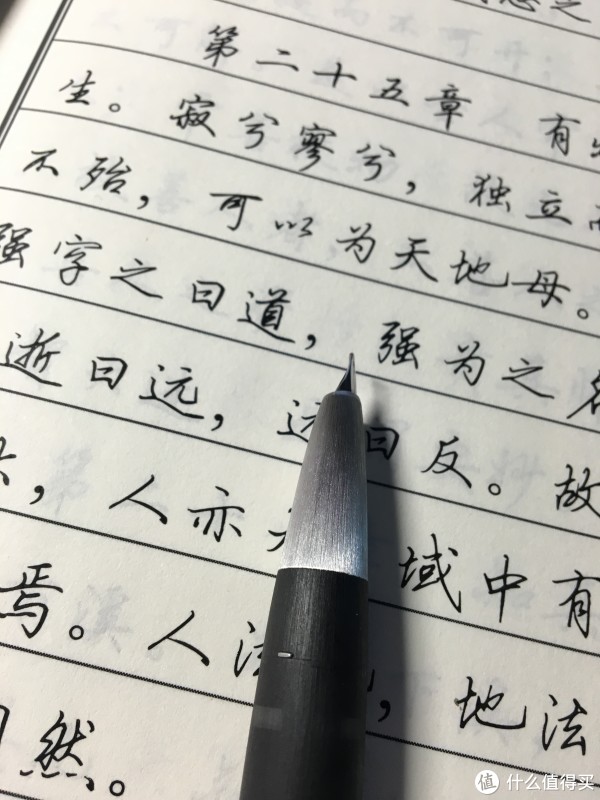 之
第二十五章 有
生。寂兮寥兮，独立而
不殆，可以为天地母。
强字之曰道，强为之名
逝曰远，远曰反。故
，人亦 域中有
焉。人法 ，地法
然。
值 什么值得买